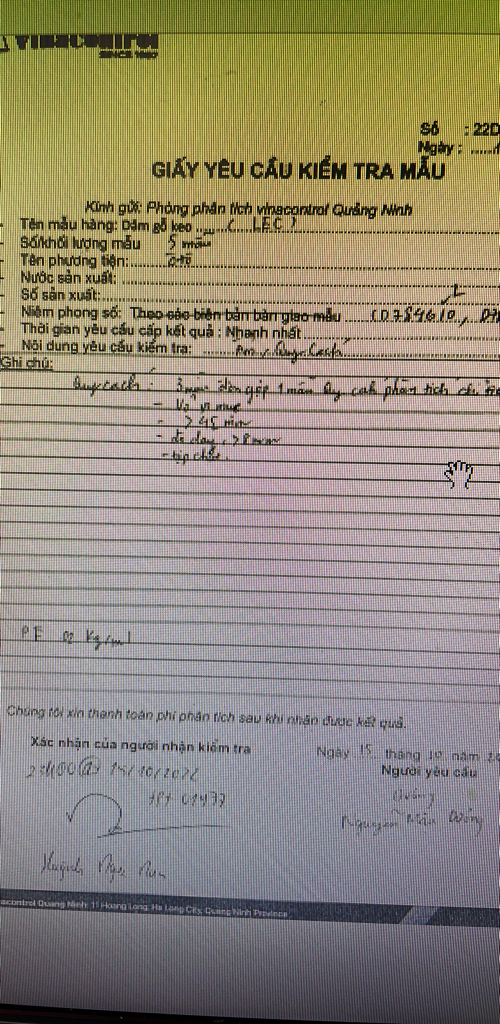 vinacontrol
Số : 22D
Ngày : ......
GIẤY YÊU CẦU KIỂM TRA MẪU
Kính gửi: Phòng phân tích vinacontrol Quảng Ninh
Tên mẫu hàng: Dăm gỗ keo ..... ( LEC )
Số/khối lượng mẫu 5 mẫu
Tên phương tiện: ô tô
Nước sản xuất:
Số sản xuất:
Niêm phong số: Theo các biên bản bàn giao mẫu
Thời gian yêu cầu cấp kết quả : Nhanh nhất
Nội dung yêu cầu kiểm tra: Ẩm, Quy Cách
Ghi chú:
Quy cách : 3 mẫu dồn gộp 1 mẫu Quy cách phân tích chỉ
- Vỏ vi mục
- > 45 mm
- dày, > 8 mm
- tạp chất.
PE 02 Kg/ml
Chúng tôi xin thanh toán phí phân tích sau khi nhận được kết quả.
Xác nhận của người nhận kiểm tra
Ngày 15 tháng 10 năm
15/10/2022
Người yêu cầu
Nguyễn
Huỳnh Ngọc
acontrol Quang Ninh: 11 Hoang Long, Ha Long City, Quang Ninh Province